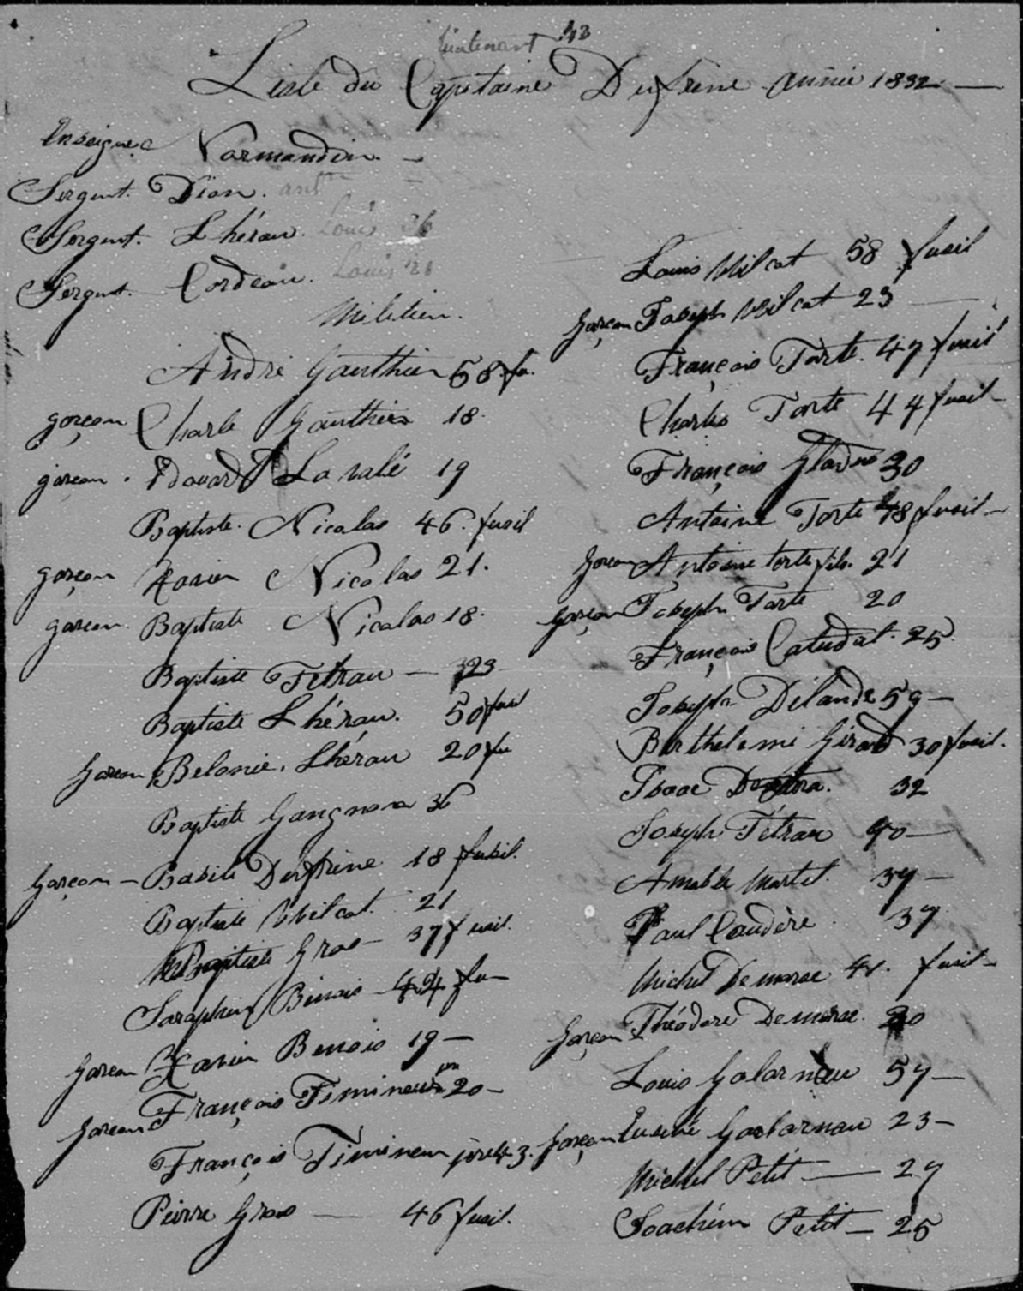 lieutenant 43
Liste du Capitaine Dufrene année 1832
Enseigne Normandin
Sergent. Dion. ant
Sergent. Lhérau. Louis 36
Sergent. Cordeau. Louis 28
Militien.
André Gauthier 58 fu.
garçon Charle Gauthier 18.
garçon. Edouard Lavalé 19
Baptiste. Nicolas 46. fusil
garçon Xavier Nicolas 21.
garçon Baptiste Nicolas 18.
Baptiste Tétrau — 323
Baptiste Lhérau. 50 fusil
garçon Belonie. Lhérau 20 fu
Baptiste Gangnon 36
garçon — Basile Dufrene 18 fusil.
Baptiste Wilcat. 21
Baptiste Gros — 37 fusil.
Saraphin Benois — 44 fu —
garçon Xavier Benois 19 —
garçon François Fimineur 20 —
François Fimineur père 43.
Pierre Gros — 46 fusil.
Louis Wilcat 58 fusil
garçon Joseph Wilcat 23 —
François Torte. 47 fusil
Charles Torte 44 fusil —
François Gladu 30
Antoine Torte 48 fusil —
garçon Antoine torte fils. 21
garçon Joseph Torte 20
François Catudat. 25
Joseph Délande 59 —
Barthelemi Girard 30 fusil.
Isaac 32
Joseph Tétrau 40 —
Amable Martel. 34 —
Paul Coudère 37
Michel Demarse 41. fusil —
garçon Théodore Demarse. 20
Louis Galarneau 57 —
garçon Eusèbe Galarnau 23 —
Michel Petit — 27
Joachim Petit — 25